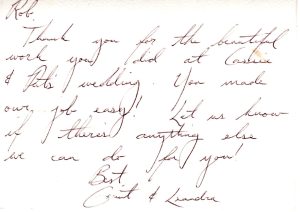 Rob,
Thank you for the beautiful
work you did at Cassie
& Pat's wedding. You made
our job easy! Let us know
if theres anything else
we can do for you!
Best,
& Leandra